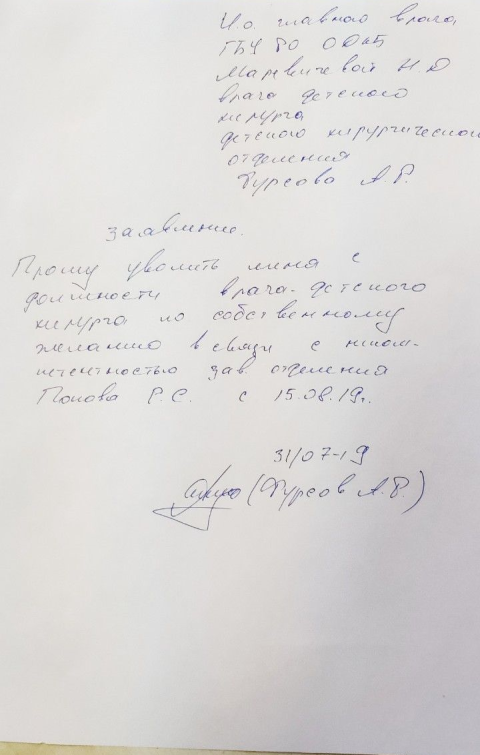 И.о главного врача
ГБУ РО ОДКБ
Маревичевой Н Д
врача детского
хирурга
детского хирургического
отделения
Фурсова А.Р.
Заявление.
Прошу уволить меня с
должности врача-детского
хирурга по собственному
желанию в связи с неком-
петентностью зав отделения
Попова Р.С. с 15.08.19г.
31/07-19
(Фурсов А.Р.)